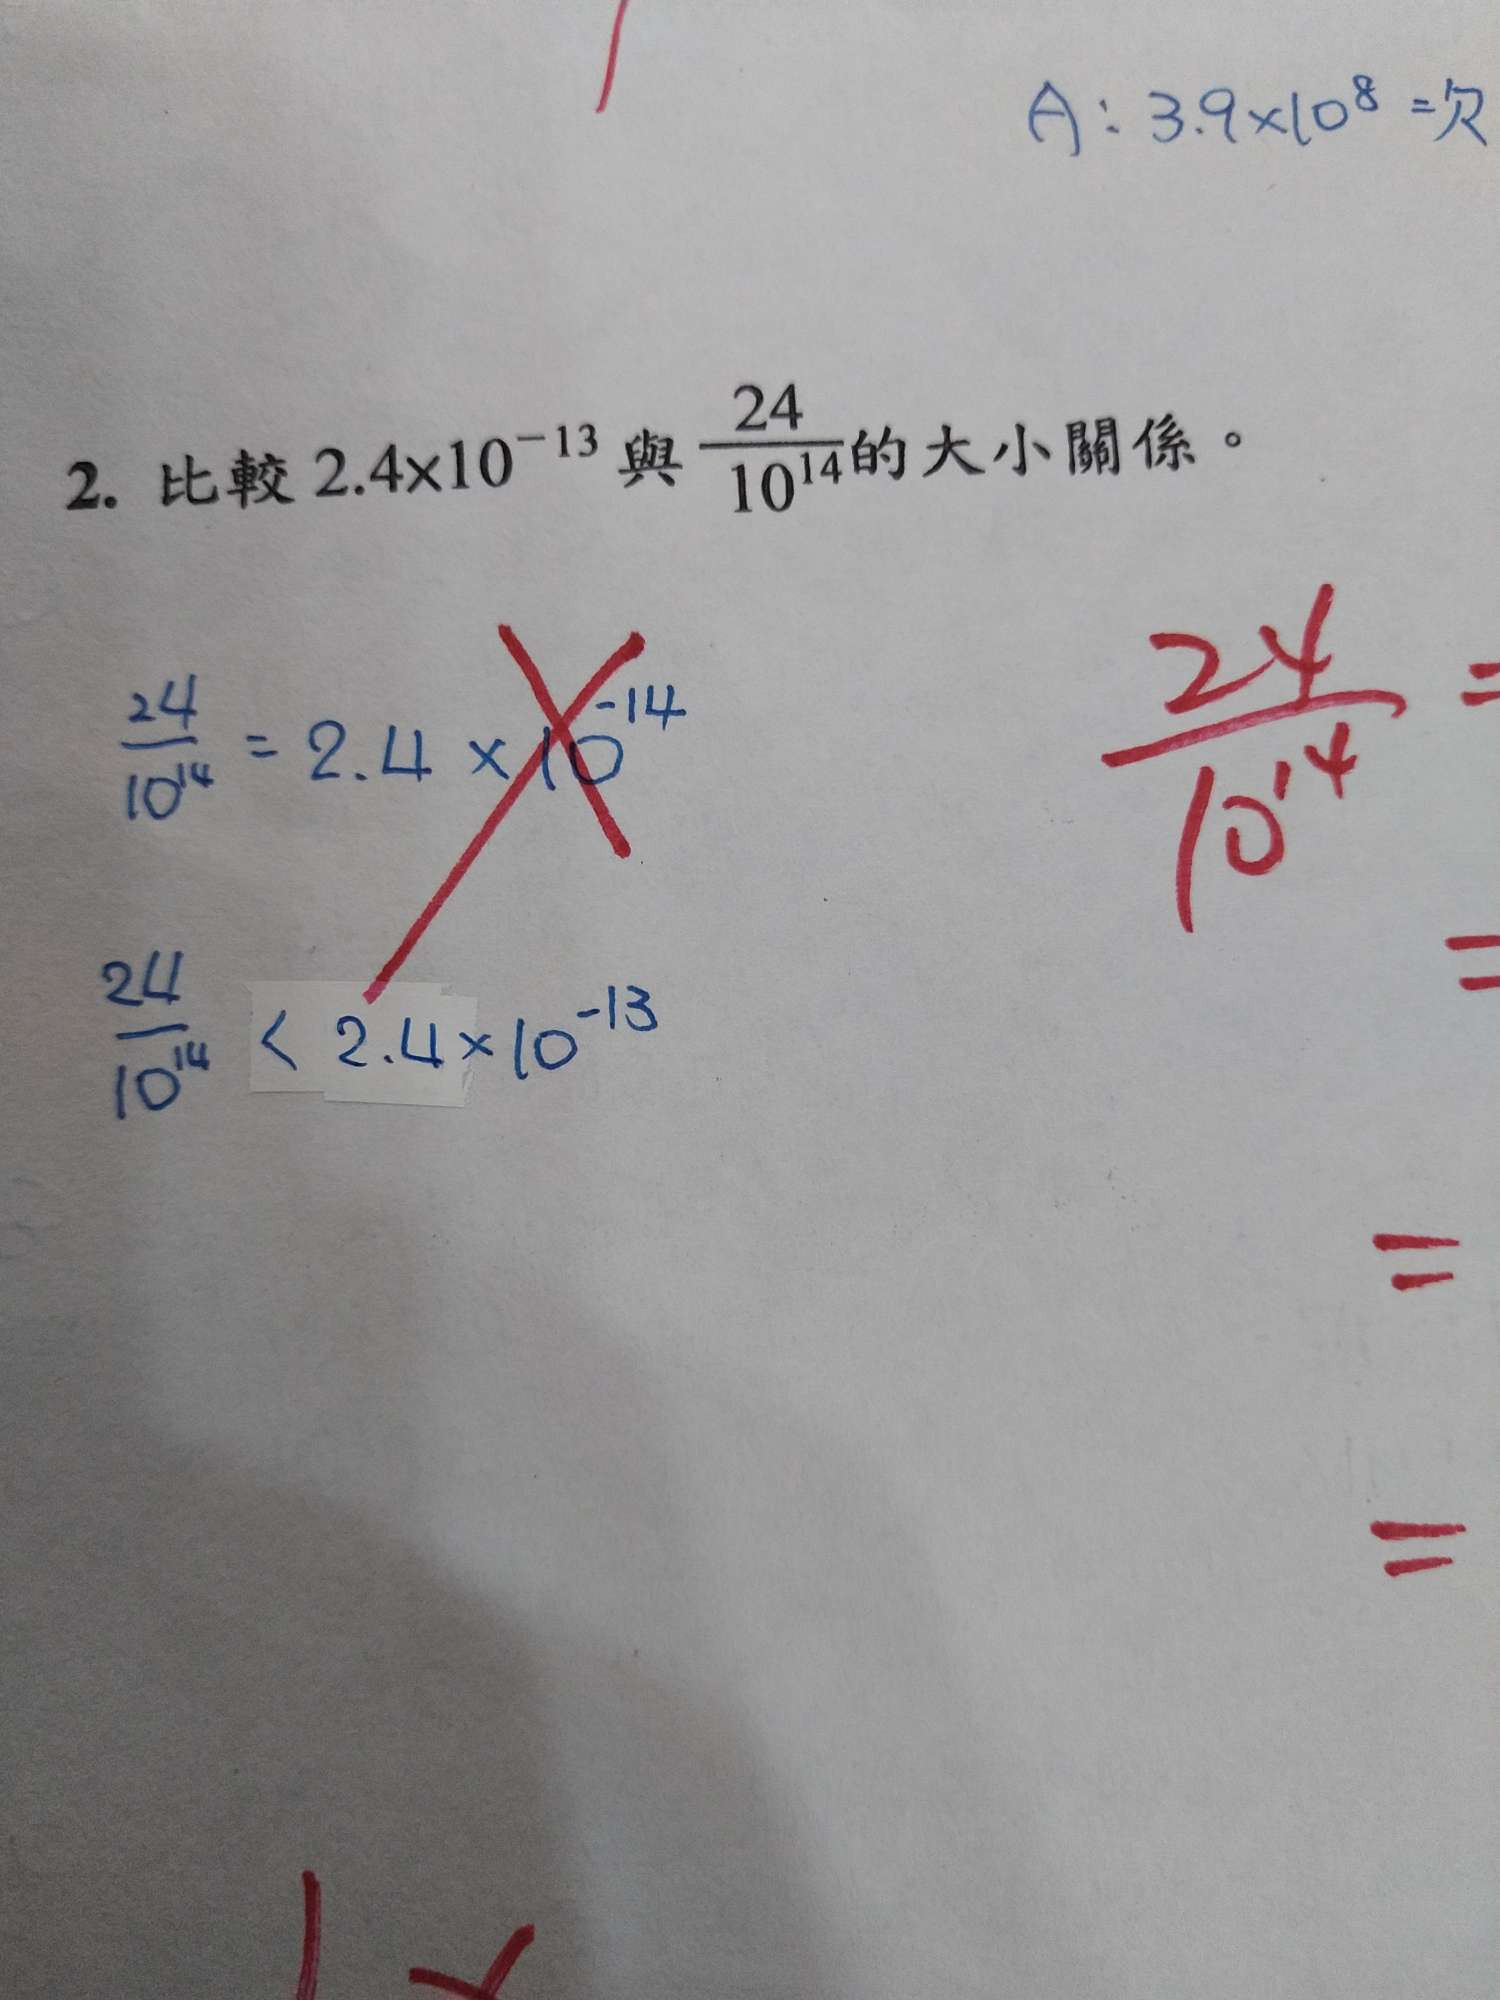 A: 3.9×10⁸ =次
2. 比較 2.4×10⁻¹³ 與 24/10¹⁴ 的大小關係。
24/10¹⁴ = 2.4 × 10⁻¹⁴
24/10¹⁴ =
24/10¹⁴ < 2.4 × 10⁻¹³
=
=
=